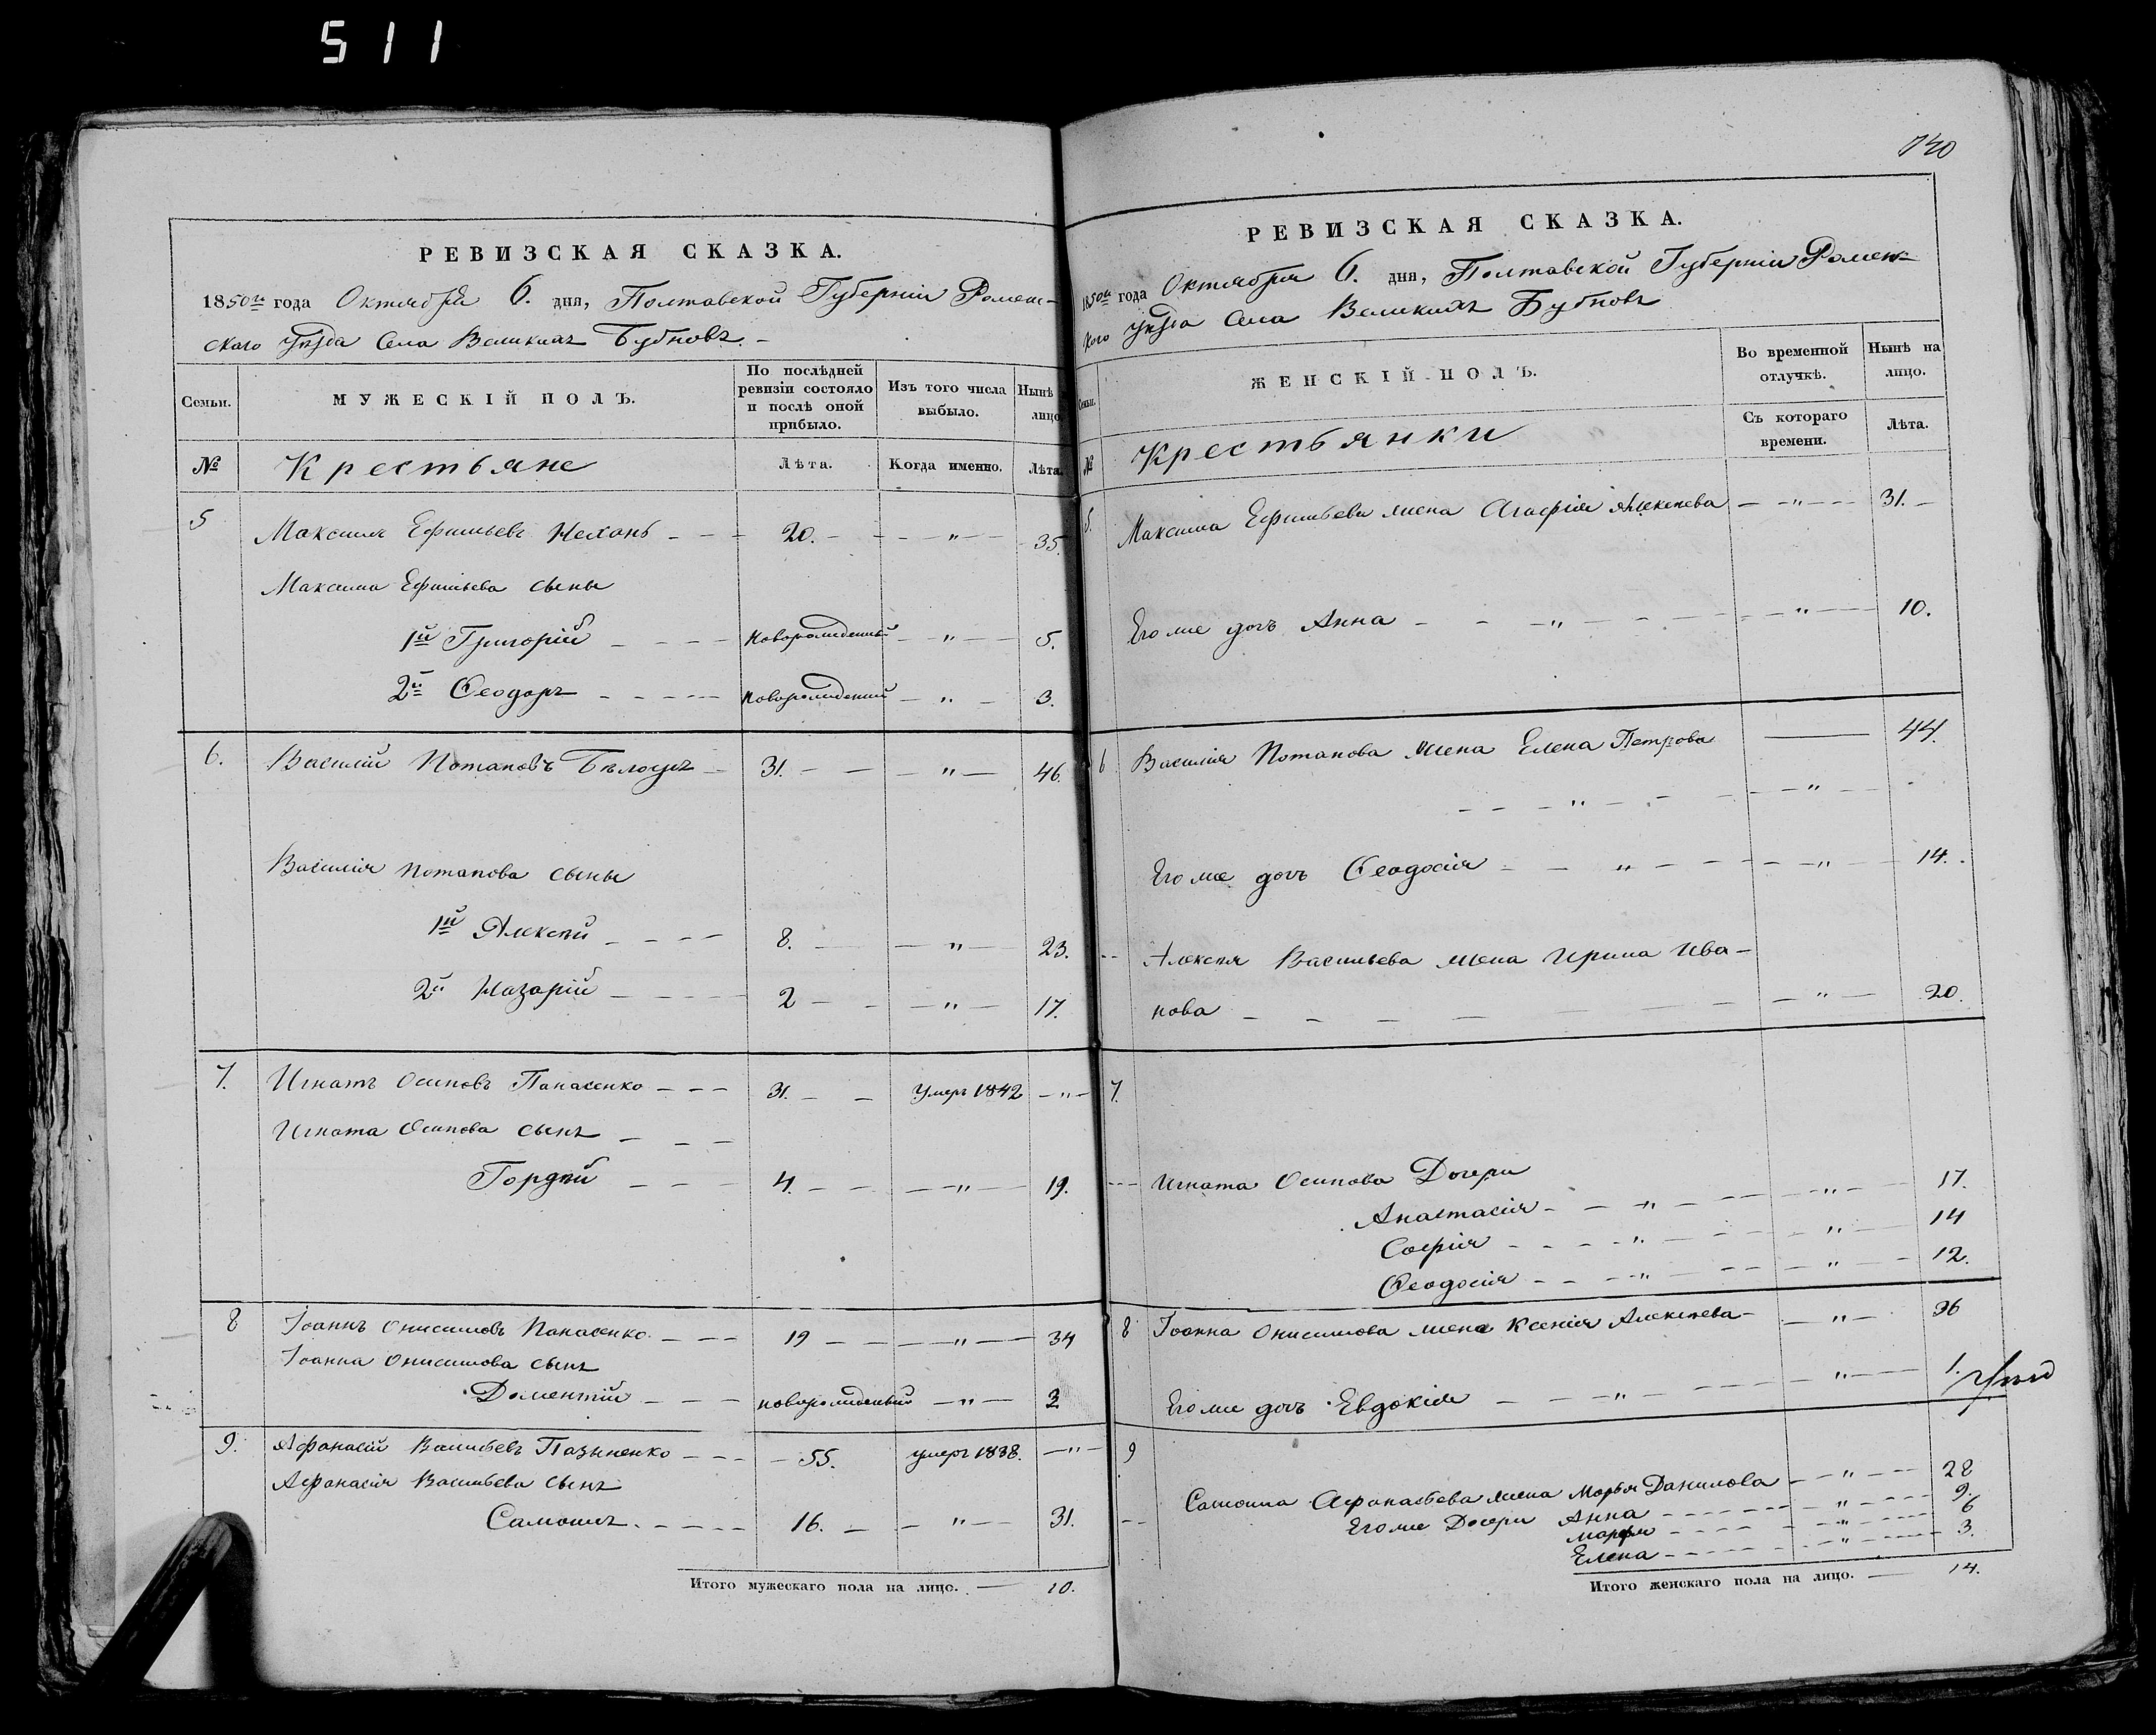 511
РЕВИЗСКАЯ СКАЗКА.
1850го года Октября 6. дня, Полтавской Губерніи Ромен-
скаго уѣзда Села Великихъ Бубновъ. -
Семьи.
МУЖЕСКІЙ ПОЛЪ.
По послѣдней ревизіи состояло и послѣ оной прибыло.
Изъ того числа выбыло.
Нынѣ лицо
№ Крестьяне Лѣта. Когда именно. Лѣта.
5 Максимъ Ефимьевъ 20. " 35.
Максима Ефимьева сыны
1й Григорій новорожденный " 5.
2й Ѳеодоръ новорожденный " 3.
6. Василій Потаповъ Бѣлоусъ 31. " 46.
Василія Потапова сыны
1й Алексѣй 8. " 23.
2й Назарій 2 " 17.
7. Игнатъ Осиповъ Панасенко 31. Умеръ 1842 "
Игната Осипова сынъ
Гордѣй 4. " 19.
8 Іоаннъ Онисимовъ Панасенко 19 " 34
Іоанна Онисимова сынъ
Доментій новорожденный " 3
9. Афанасій Васильевъ 55. умеръ 1838. "
Афанасія Васильева сынъ
Самоилъ 16. " 31.
Итого мужескаго пола на лицо. 10.
740
РЕВИЗСКАЯ СКАЗКА.
1850го года Октября 6. дня, Полтавской Губерніи Ромен-
кого уѣзда Села Великихъ Бубновъ
Семьи.
ЖЕНСКІЙ ПОЛЪ.
Во временной отлучкѣ.
Нынѣ на лицо.
№ Крестьянки Съ котораго времени. Лѣта.
5. Максима Ефимьева жена Агафія Алексѣева " 31.
Его же дочь Анна " " 10.
6 Василія Потапова жена Елена Петрова 44.
" "
Его же дочь Ѳеодосія " " 14.
Алексѣя Васильева жена Ирина Ива-
нова " 20.
7.
Игната Осипова Дочери
Анастасія " " 17.
Софія " " 14
Ѳеодосія " " 12.
8 Іоанна Онисимова жена Ксенія Алексѣева " 36
Его же дочь Евдокія " " 1.
9
Самоила Афанасьева жена Марья Данилова " 28
Его же Дочери Анна " 9.
Марфа " 6
Елена " 3.
Итого женскаго пола на лицо. 14.